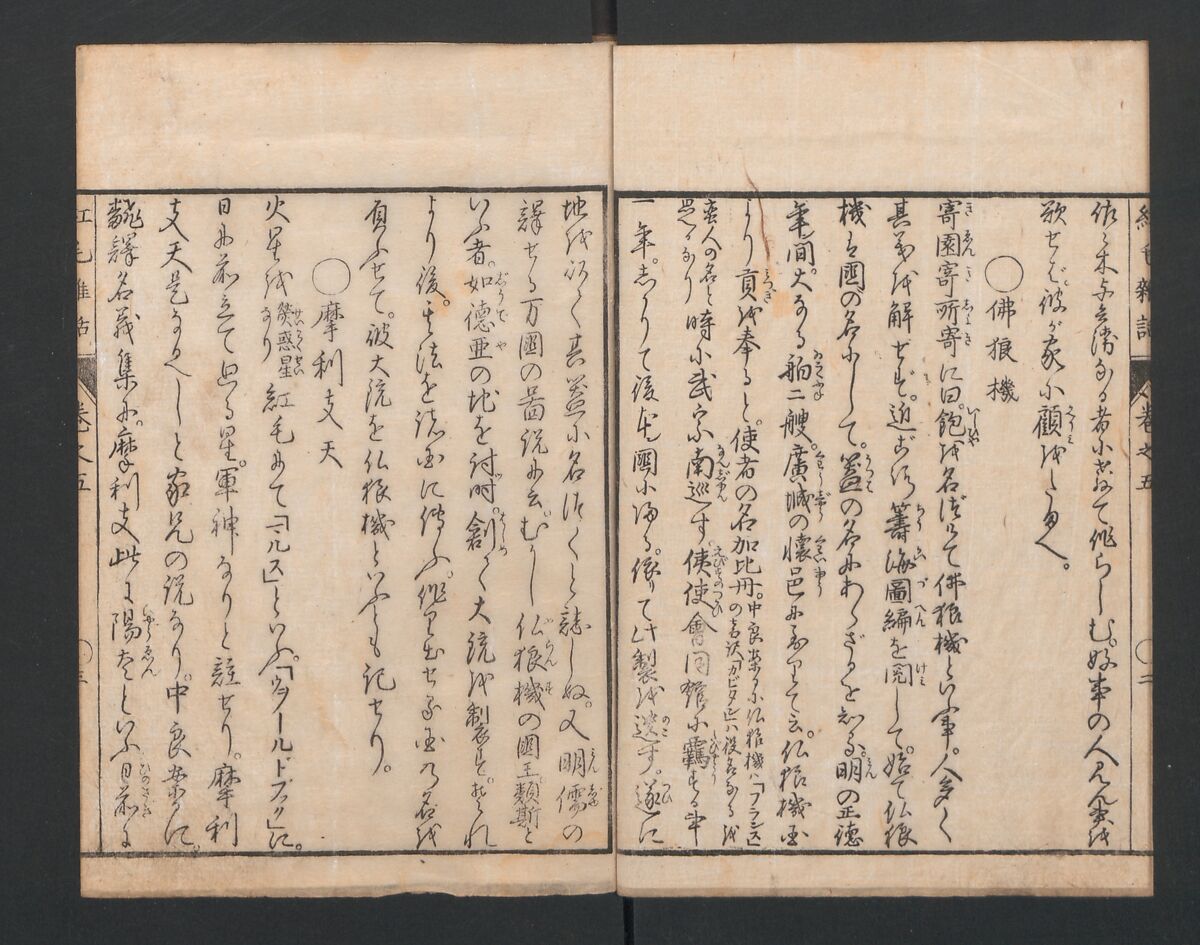 紅毛雜話 巻之五 〇二
佐々木与兵衛なる者に命て作らしむ。好事の人見ん事を
欲せば。彼が家に顧をしたまへ。
〇佛狼機
寄園寄所寄に曰。飽を名づけて佛狼機といふ事。人多く
其義を解せず。近ごろ籌海圖編を閲して。始て仏狼
機は國の名にして。蓋の名にあらざるを知る。明の正徳
年間。大なる舶二艘。廣城の懐邑に至りて云。仏狼機国
より貢を奉ると。使者の名加比丹。中良案るに仏狼機ハ「フランス」の古訳「カピタン」ハ役名なるを
蛮人の名と是なり 時に武宗南巡す。使會同館に羈する事
一年。しかりて後本國に帰る。依りて此製を遺す。遂に
地を以て其蓋に名づくと誌しぬ。又明儒の
譯せる万國の啚説に云。むかし仏狼機の國王類斯と
いふ者。如德亜の地を討時。創て大銃を制す。それ
より後。其法を諸国に伝ふ。作り出せる国の名を
負ふせて。彼大銃を仏狼機といふとも記せり。
〇摩利支天
火星を 熒惑星なり 紅毛にて「マルス」といふ。「ウヲールドブック」に。
日の前に立て出る星。軍神なりと註せり。摩利
支天是なるべしと家兄の説なり。中良案るに。
飜譯名義集に。摩利支此に陽炎といふ日前に
紅毛雜話 巻之五 〇三